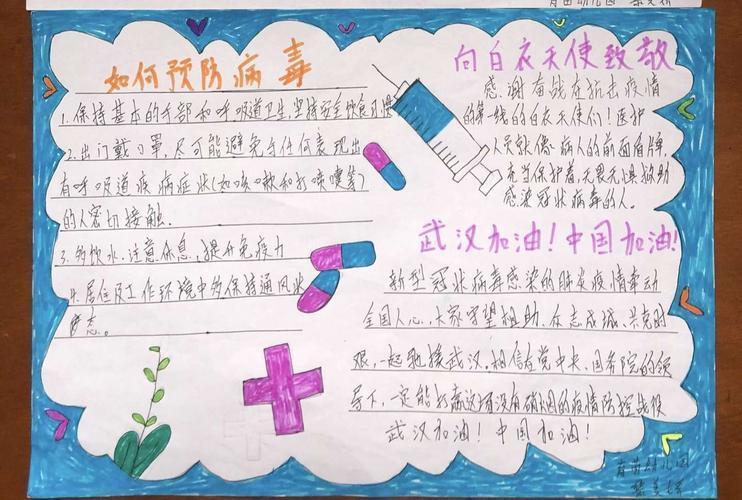 如何预防病毒
1.保持基本的手部和呼吸道卫生,坚持安全饮食习惯
2.出门戴口罩,尽可能避免与任何表现出
有呼吸道疾病症状(如咳嗽和打喷嚏等)
的人密切接触.
3.多饮水.注意休息,提升免疫力
4.居住及工作环境中多保持通风状
态。
向白衣天使致敬
感谢奋战在抗击疫情
的第一线的白衣天使们!医护
人员就像病人的前面盾牌,
充当保护着,无畏无惧救助
感染冠状病毒的人。
武汉加油!中国加油!
新型冠状病毒感染的肺炎疫情牵动
全国人心,大家守望相助、众志成城、共克时
艰,一起驰援武汉.相信在党中央、国务院的领
导下,一定能打赢这场没有硝烟的疫情防控战役
武汉加油!中国加油!
育苗幼儿园